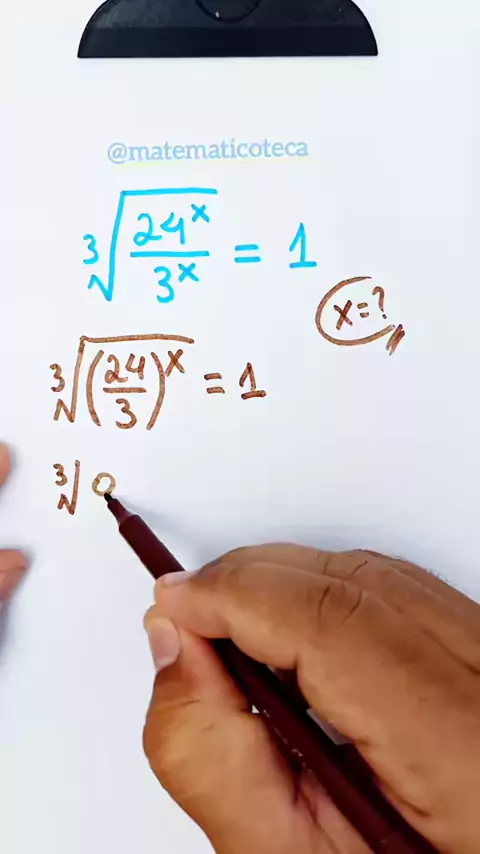 @matematicoteca
∛(24^x / 3^x) = 1
x = ?
∛((24/3)^x) = 1
∛